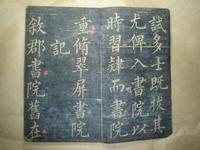 試多士既拔其
尤俾入書院以
時習肄而書院
重脩翠屏書院
記
敘郡書院舊在